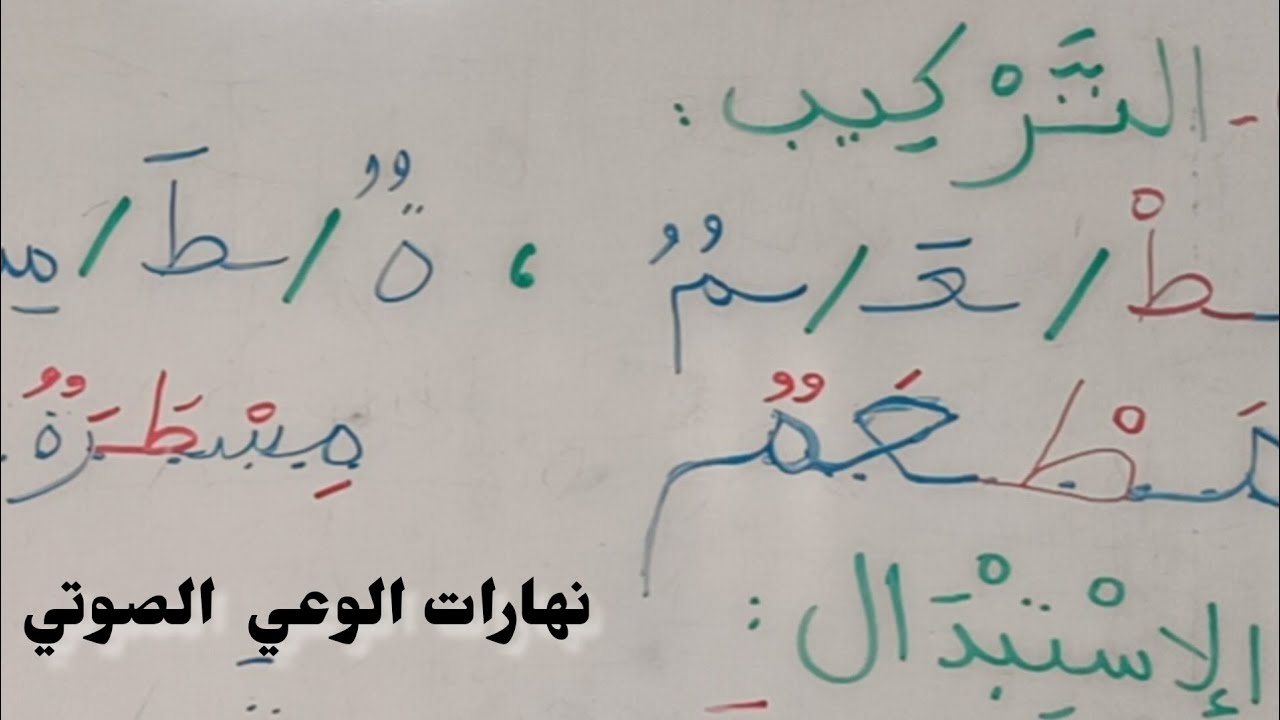 - التَّرْكِيب :
ـطْ / ـعَـ / ـمٌ ، ةٌ / ـطَ / مِسـ
مَطْعَمٌ مِسْطَرَةٌ
الإسْتبْدَال :
نهارات الوعي الصوتي